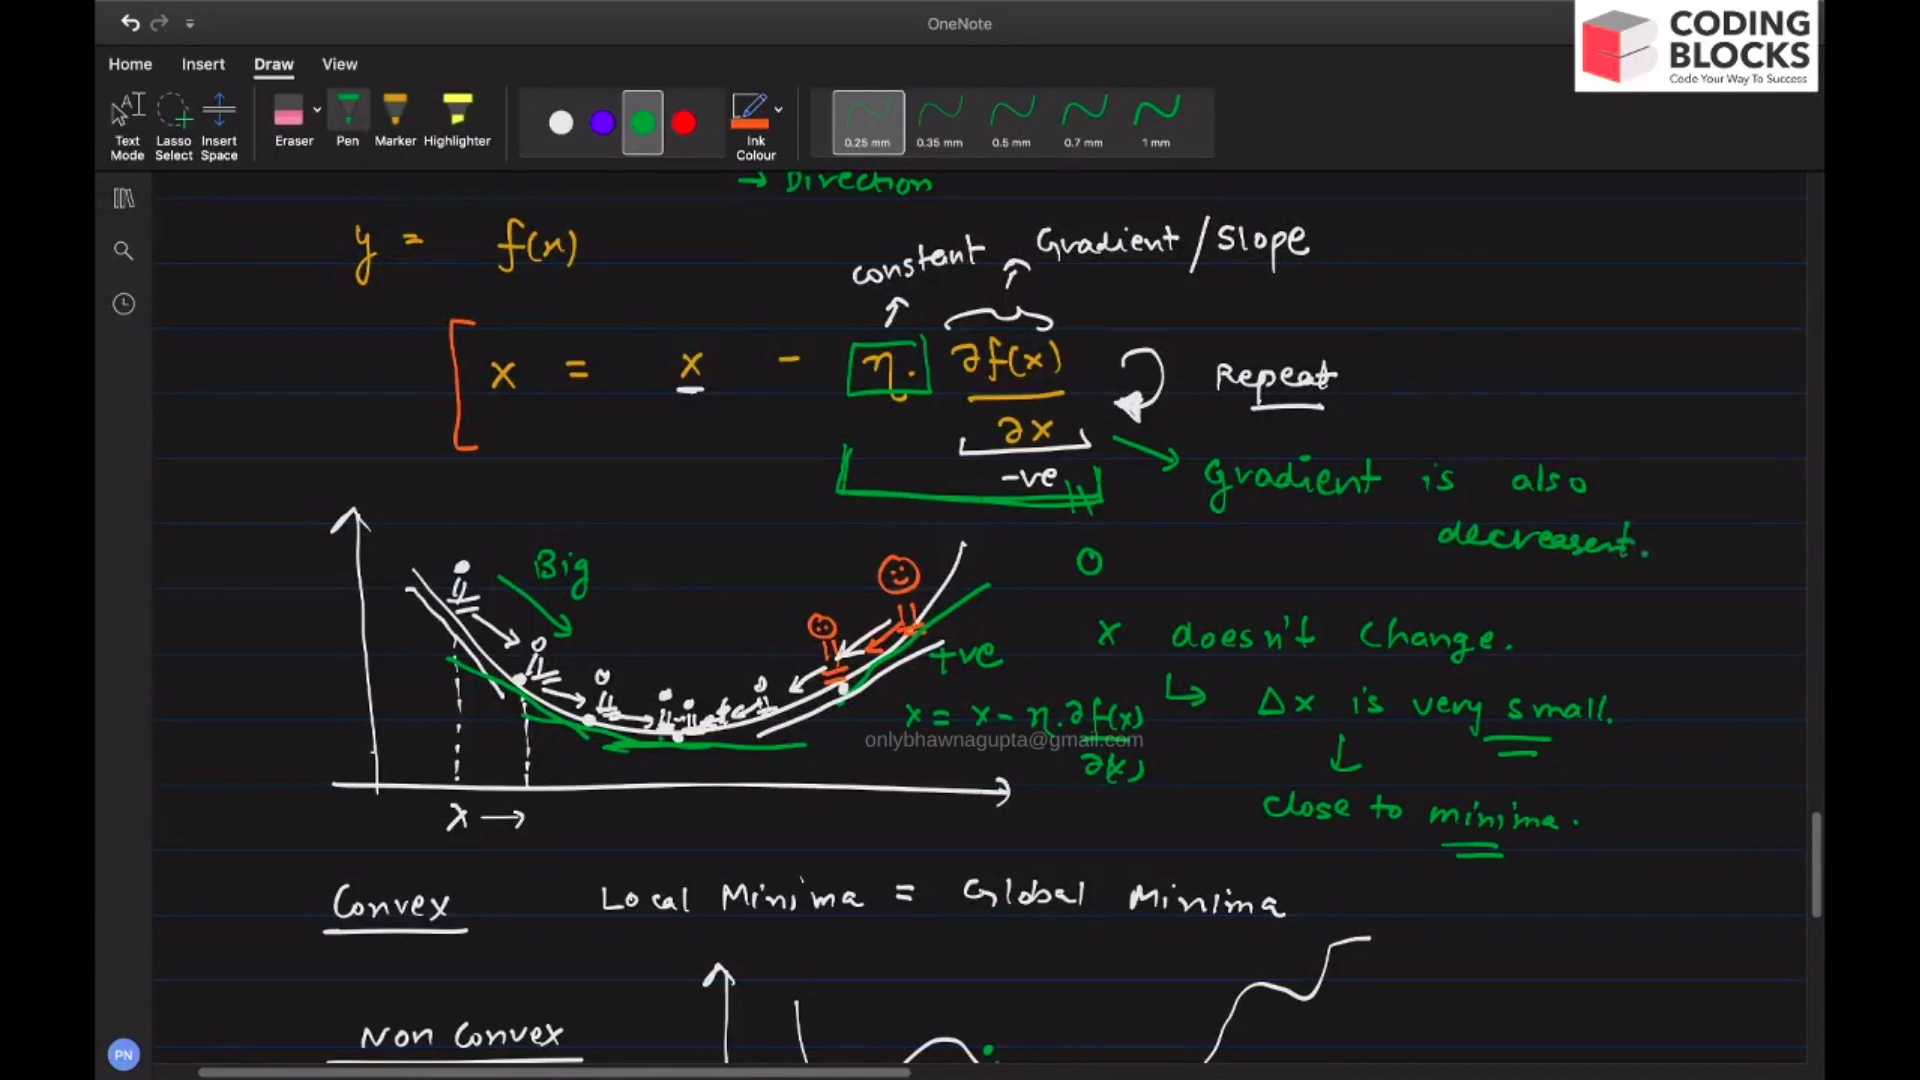 OneNote
CODING
BLOCKS
Code Your Way To Success
Home Insert Draw View
Text Mode
Lasso Select
Insert Space
Eraser
Pen
Marker
Highlighter
Ink Colour
0.25 mm 0.35 mm 0.5 mm 0.7 mm 1 mm
→ Direction
y = f(x)
constant
Gradient / Slope
x = x - η. ∂f(x)
∂x
Repeat
-ve
Gradient is also
decreasent.
Big
0
+ve
x doesn't change.
↳ Δx is very small.
x = x - η. ∂f(x)
∂(x)
onlybhawnagupta@gmail.com
↓
close to minima.
x →
Convex
Local Minima = Global Minima
Non Convex
PN